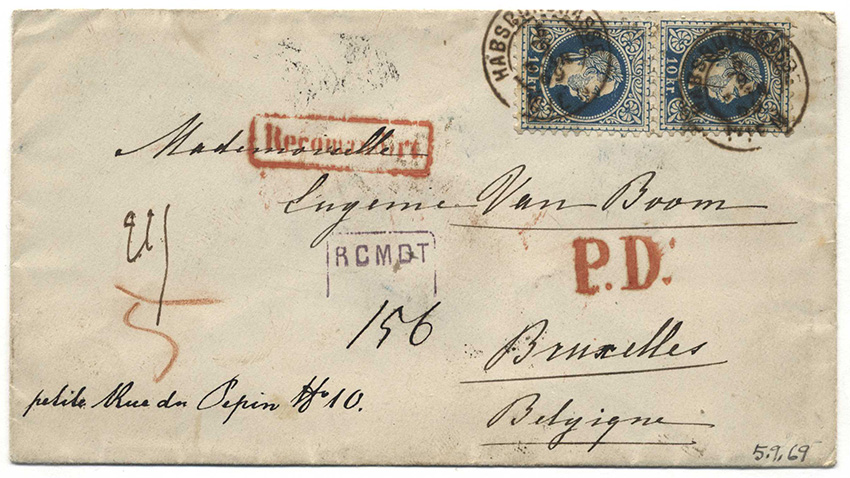 HABSBURGERGASSE
10 kr
10 kr
Recomandirt
Mademoiselle
Eugenie Van Boom
RCMDT
P.D.
156
Bruxelles
petite Rue du Pepin No 10.
Belgique
5.9.69